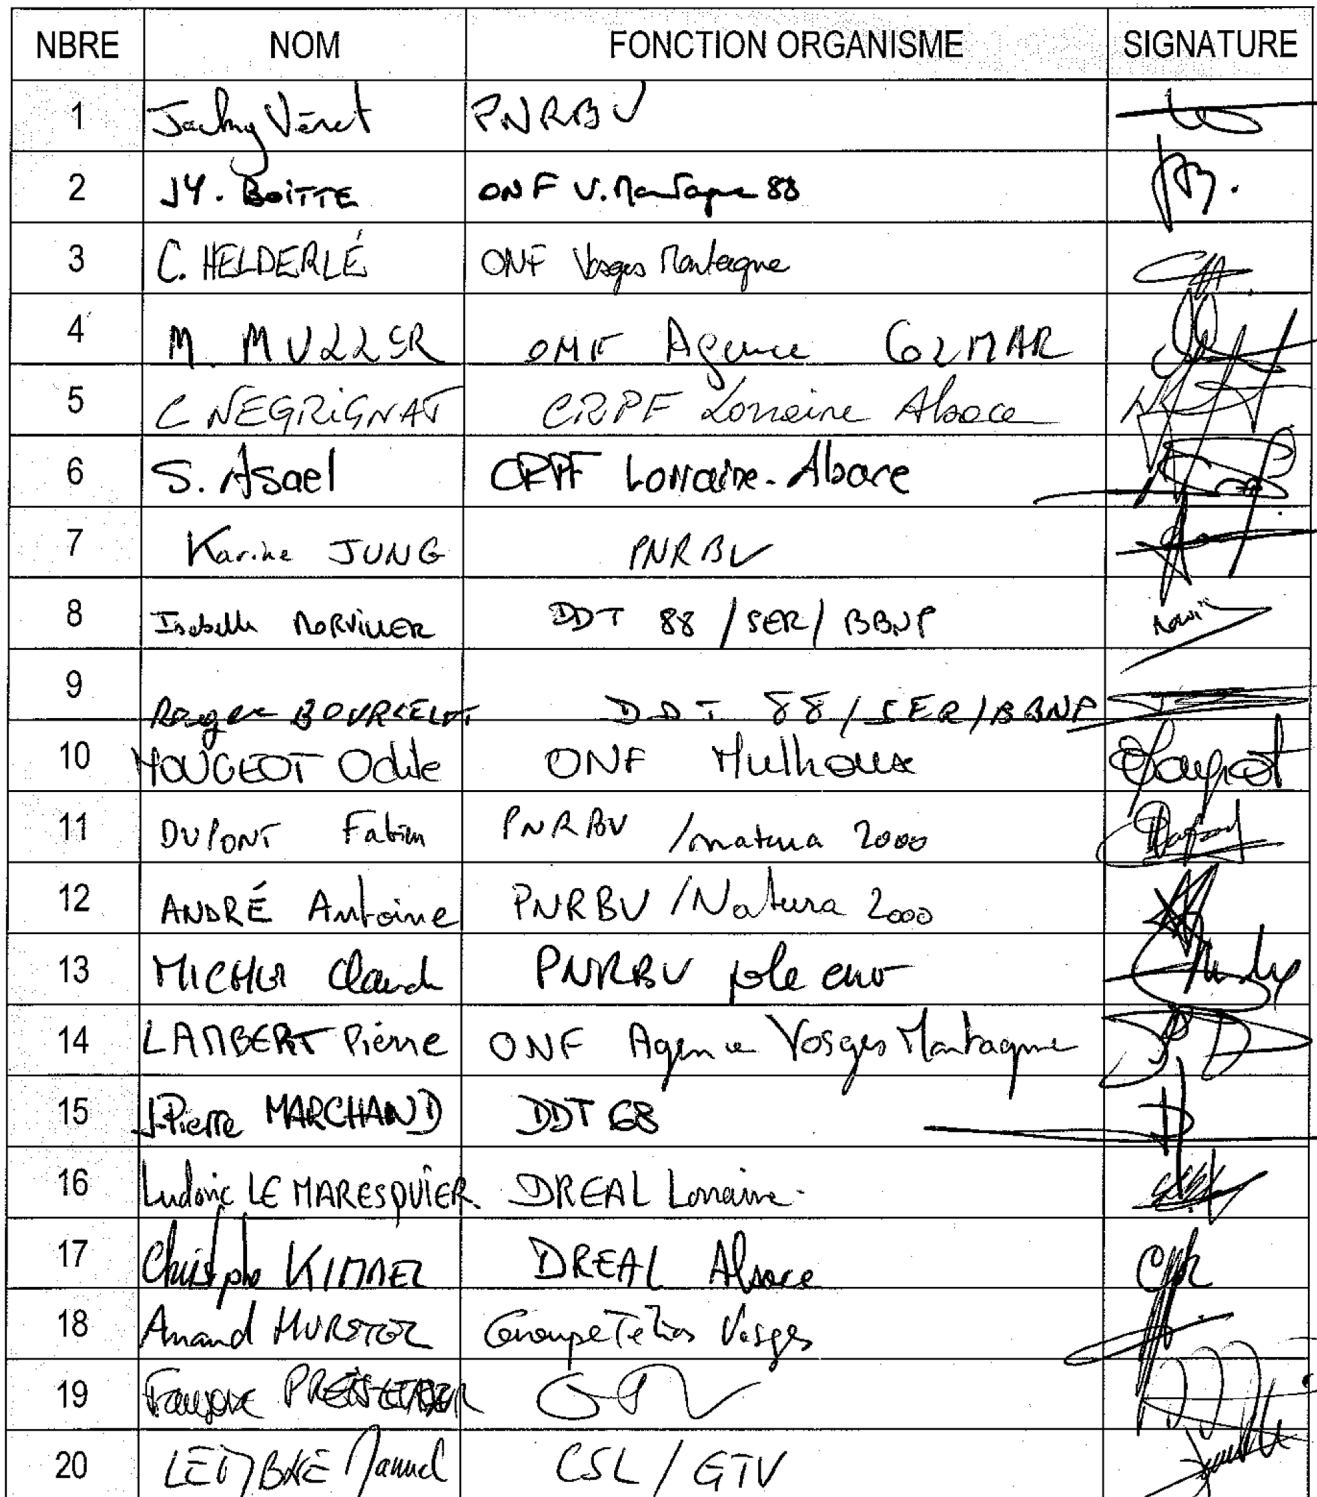 NBRE NOM FONCTION ORGANISME SIGNATURE
1 Jacky Véret PNRBV
2 JY. BOITTE ONF V. Montagne 88
3 C. HELDERLÉ ONF Vosges Montagne
4 M. MULLER ONF Agence COLMAR
5 C NEGRIGNAT CRPF Lorraine Alsace
6 S. Asael CRPF Lorraine-Alsace
7 Karine JUNG PNRBV
8 Isabelle NORVILLER DDT 88 / SER / BBNP
9 Roger DDT 88 / SER / BBNP
10 MOUGEOT Odile ONF Mulhouse
11 DUPONT Fabien PNRBV / natura 2000
12 ANDRÉ Antoine PNRBV / Natura 2000
13 MICHEL Claude PNRBV pole env
14 LAMBERT Pierre ONF Agence Vosges Montagne
15 J-Pierre MARCHAND DDT 68
16 Ludovic LE MARESQUIER DREAL Lorraine
17 Christophe KIMMEL DREAL Alsace
18 Groupe Tétras Vosges
19 Françoise GTV
20 CSL / GTV